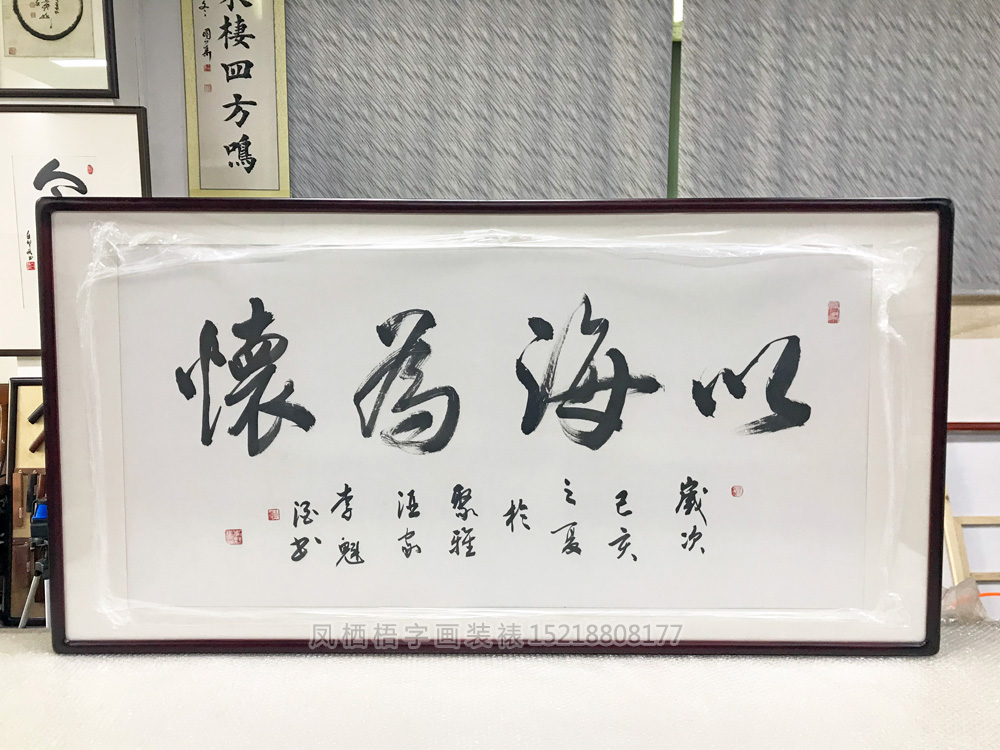 以海為懷
歲次
己亥
之夏
於
聚雅
酒家
李魁
書
來棲四方鳴
凤栖梧字画装裱15218808177